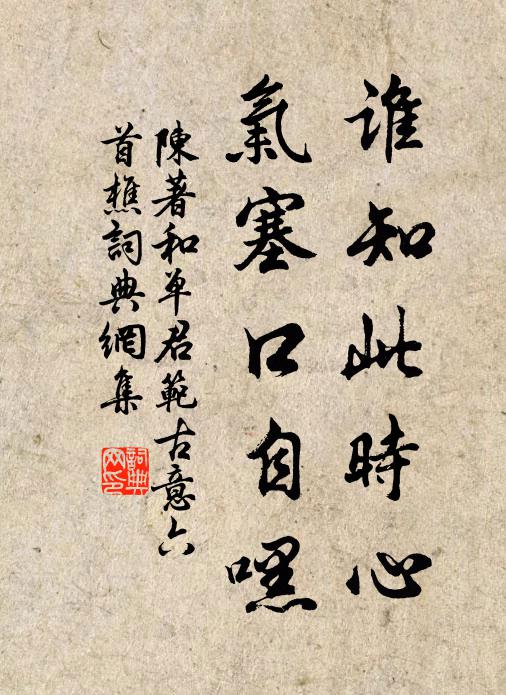 誰知此時心
氣塞口自嘿
陳著和单君範古意六
首樵詞典網集
詞典网印